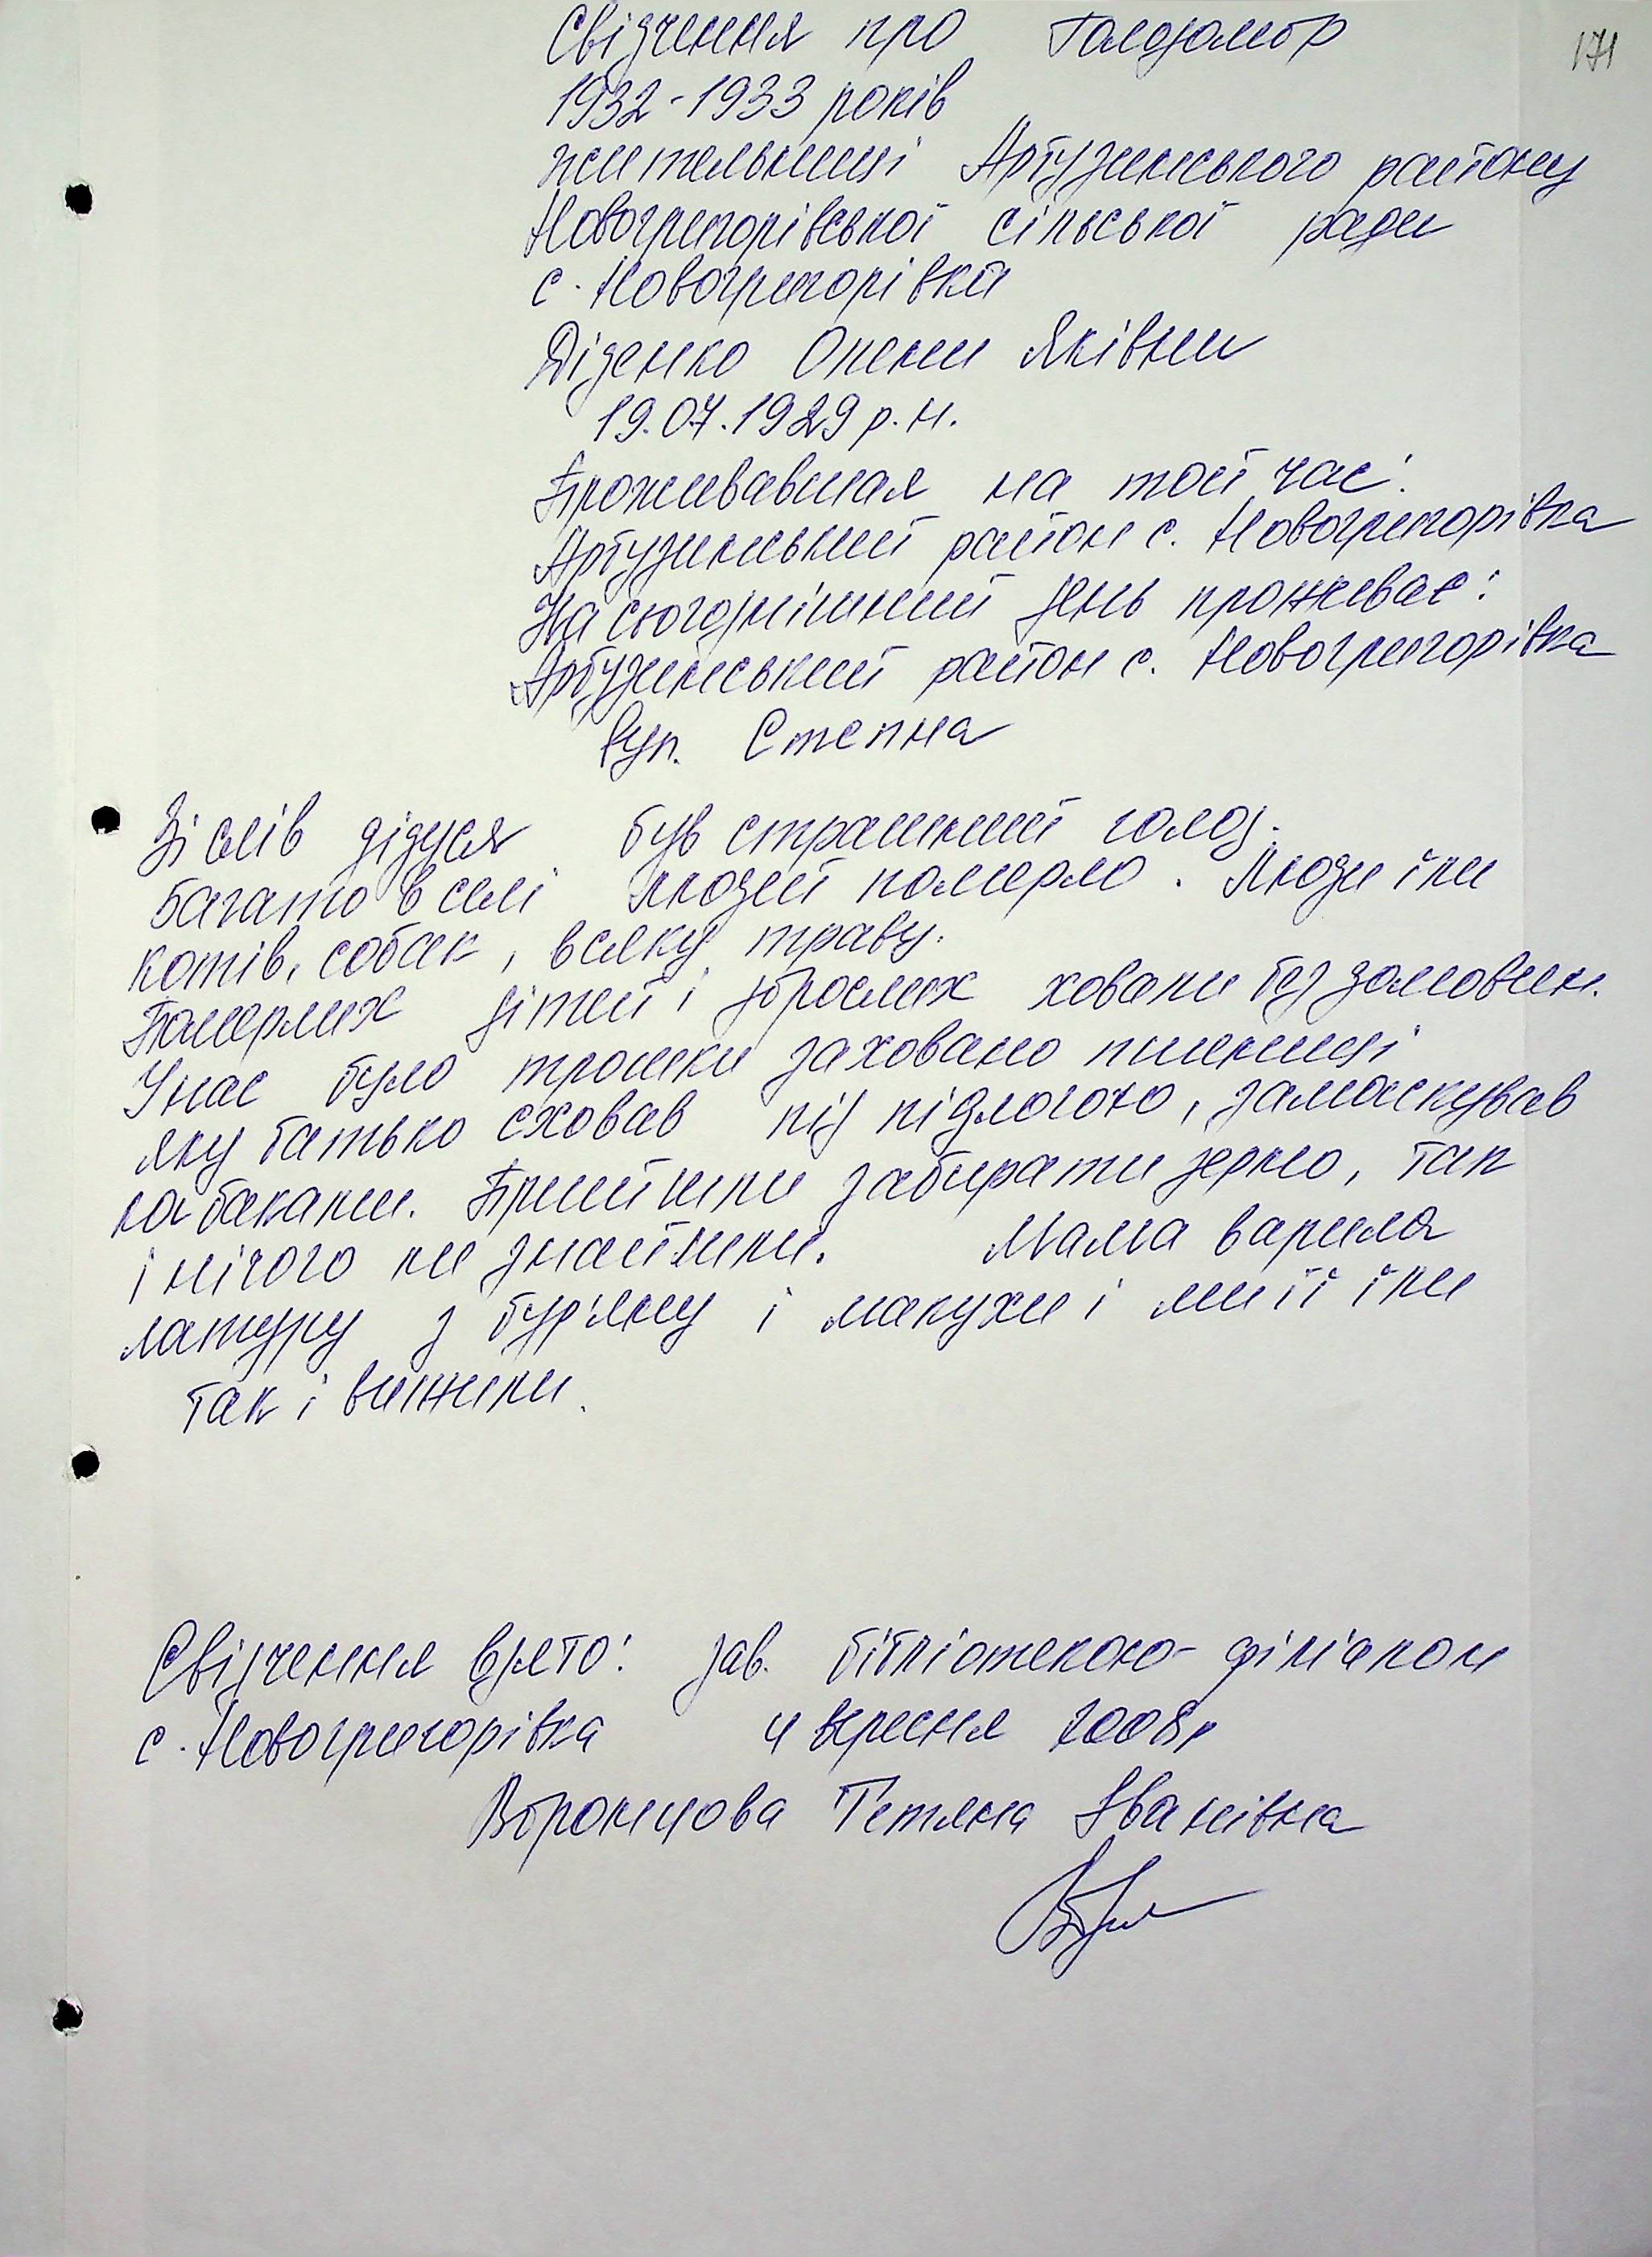 171
Свідчення про Голодомор
1932-1933 років
жительниці Арбузинського району
Новогригорівської сільської ради
с. Новогригорівка
Діденко Олени Яківни
19.07.1929 р.н.
Проживавшая на той час:
Арбузинський район с. Новогригорівка
На сьогоднішний день проживає:
Арбузинський район с. Новогригорівка
вул. Степна
Зі слів дідуся був страшний голод.
Багато в селі людей померло. Люди їли
котів, собак, всяку траву.
Померлих дітей і дорослих ховали без домовин.
У нас було трошки заховано пшениці
яку батько сховав під підлогою, замаскував
кабаками. Прийшли забирати зерно, так
і нічого не знайшли. Мама варила
латуру з бур'яну і макухи і ми її їли
так і вижили.
Свідчення взято: зав. бібліотекою-філіалом
с. Новогригорівка 4 вересня 2008р
Воронцова Тетяна Іванівна